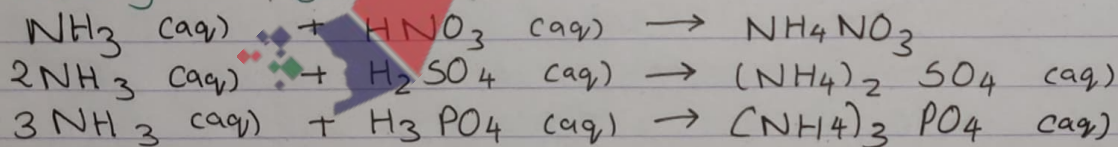 NH3 (aq) + HNO3 (aq) → NH4NO3
2NH3 (aq) + H2SO4 (aq) → (NH4)2 SO4 (aq)
3NH3 (aq) + H3 PO4 (aq) → (NH4)3 PO4 (aq)